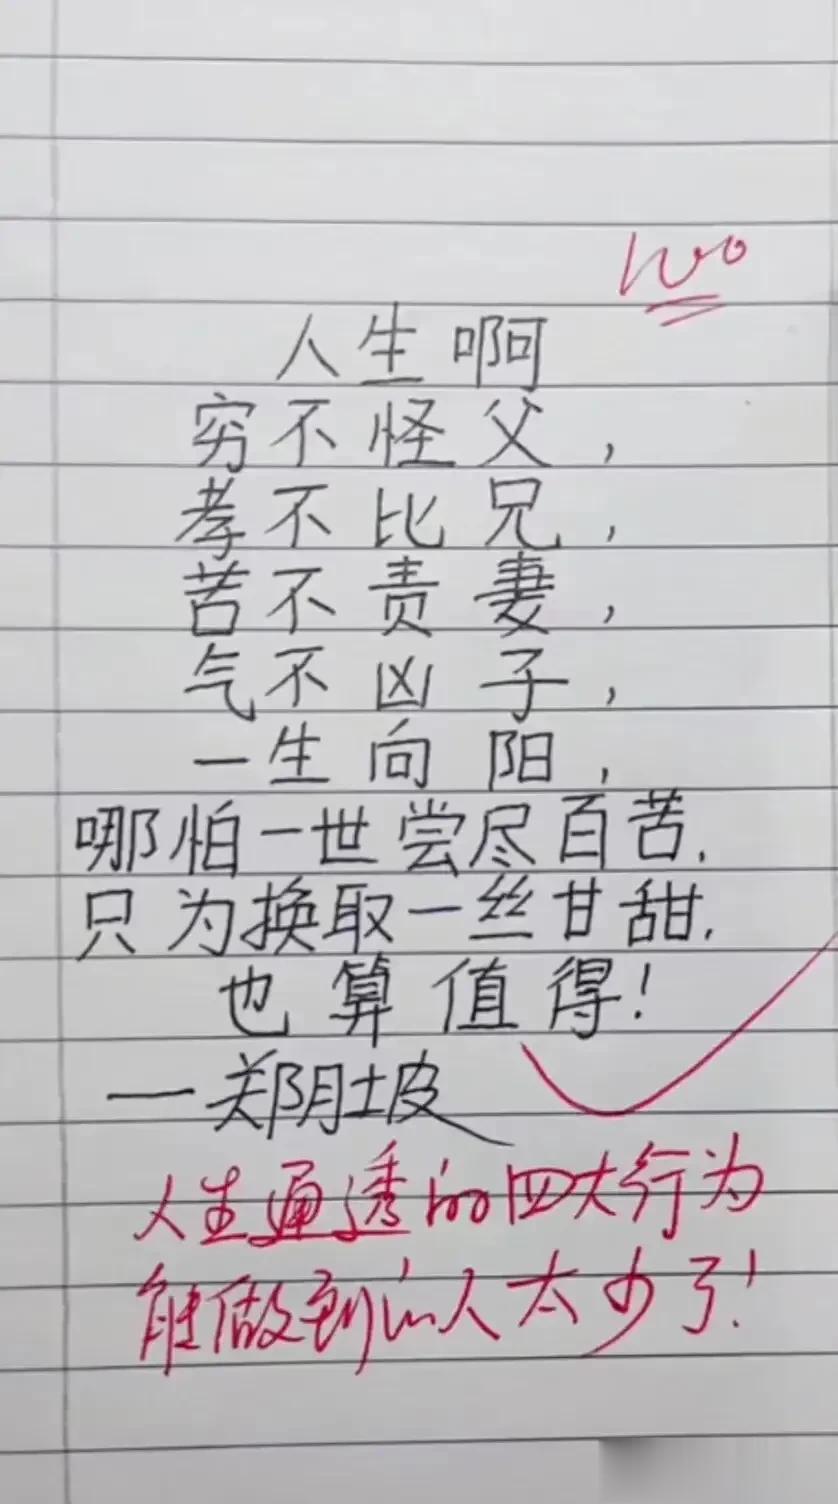 100
人生啊
穷不怪父，
孝不比兄，
苦不责妻，
气不凶子，
一生向阳，
哪怕一世尝尽百苦.
只为换取一丝甘甜.
也算值得!
——郑阳坡
人生通透的四大行为
能做到的人太少了!